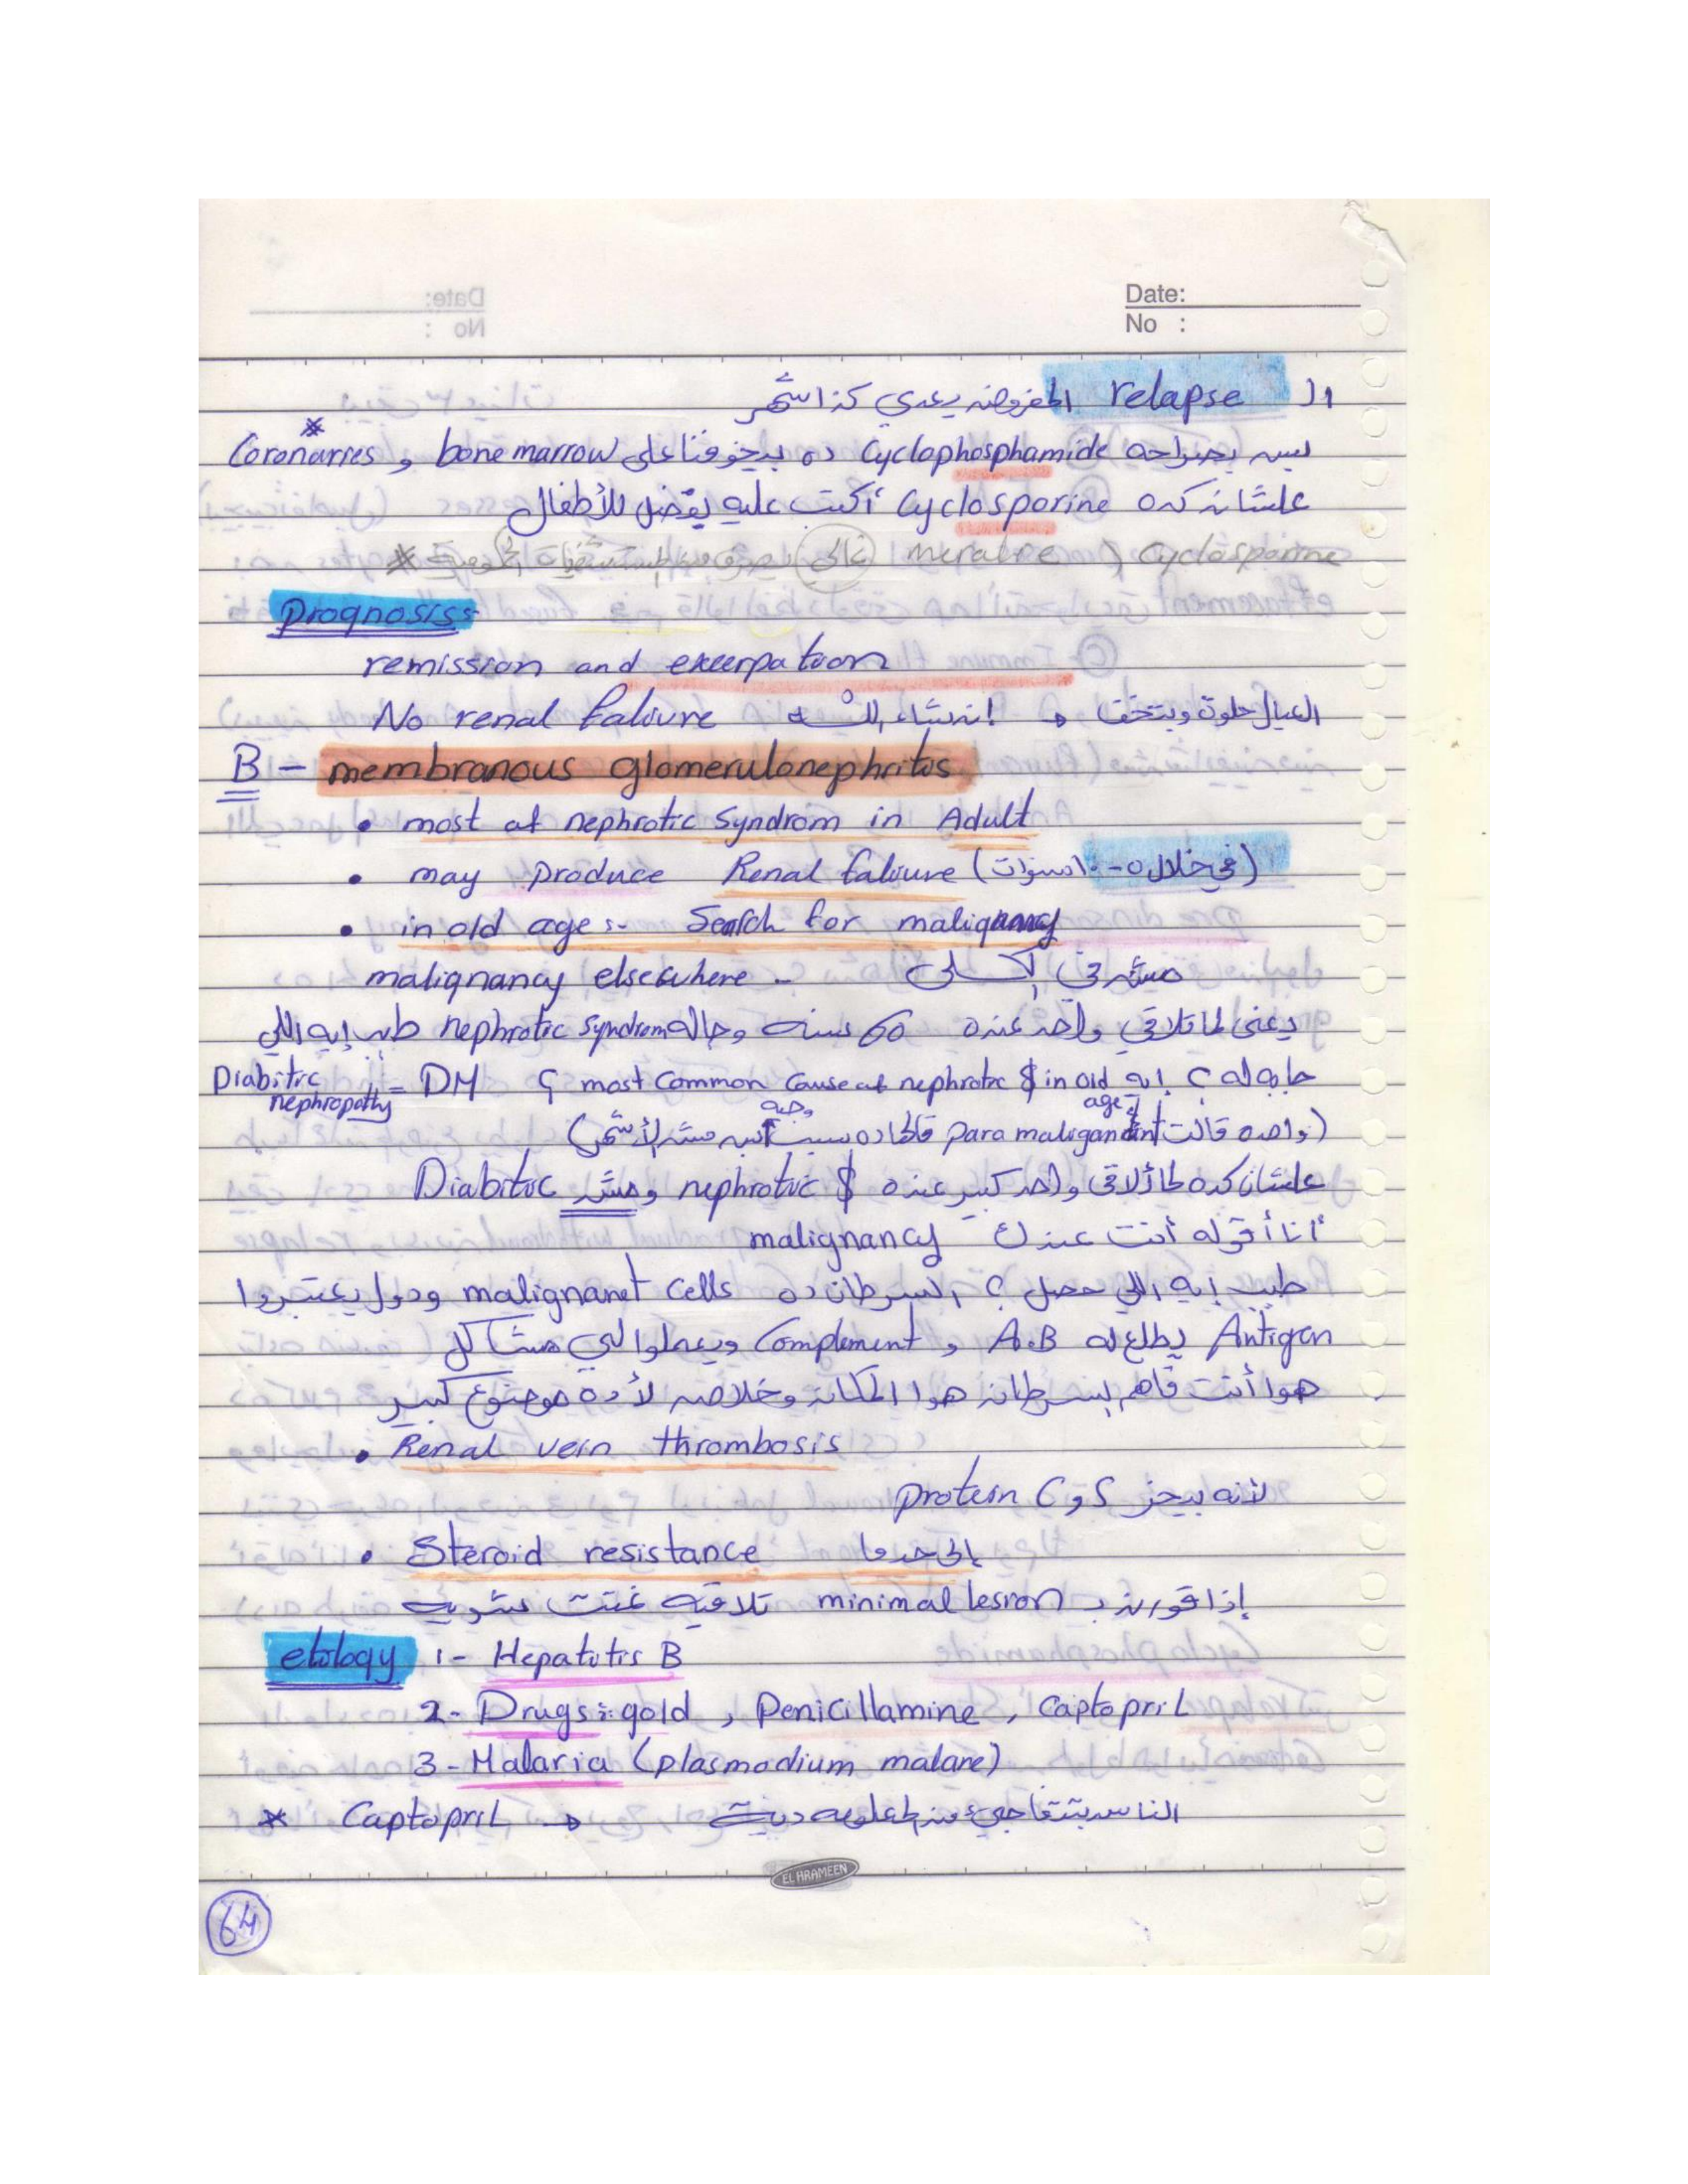 Date:
No :
ال relapse المفروض يعدي كذا شهر
بس بصراحه Cyclophosphamide ده بيخوفنا على bone marrow و Coronaries *
علشان كده Cyclosporine أكتب عليه يفضل للأطفال
Cyclosporine ( غالى
Prognosis:-
remission and
No renal faliure إن شاء الله → العيال حلوة وبتخف
B - membranous glomerulonephritis
• most of nephrotic Syndrom in Adult
• may produce Renal faliure (في خلال ٥-١٠ سنوات)
• in old age :- Search for malignancy
malignancy elsewhere - مش في الكلى
يعنى لما تلاقي واحد عنده 60 سنه وجاله nephrotic syndrom طب إيه اللي
جابه له ؟ إيه most common cause of nephrotic $ in old age ؟ DM = Diabitic nephropathy
(واحده قالت para malignant قالها ده سبب وجيه بس مش الأشهر)
علشان كده لما ألاقى واحد كبير عنده nephrotic $ ومش Diabitic
أنا أقوله أنت عندك malignancy
طب إيه اللي حصل ؟ السرطان ده malignanet cells ودول يعتبروا
Antigen يطلع له A.B و Complement ويعملوا لي مشاكل
هوا أنت فاهم السرطان هوا المكان وخلاص لأ ده موضوع كبير
• Renal vein thrombosis
لأنه بيحز protein C و S
• Steroid resistance إلى حد ما
إذا قورن ب minimal lesion تلاقيه
etiology 1- Hepatitis B
2- Drugs :- gold , Penicillamine , Captopril
3- Malaria (plasmodium malare)
* Captopril → الناس بتتفاجئ من المعلومه ديت
EL HRAMEEN
64